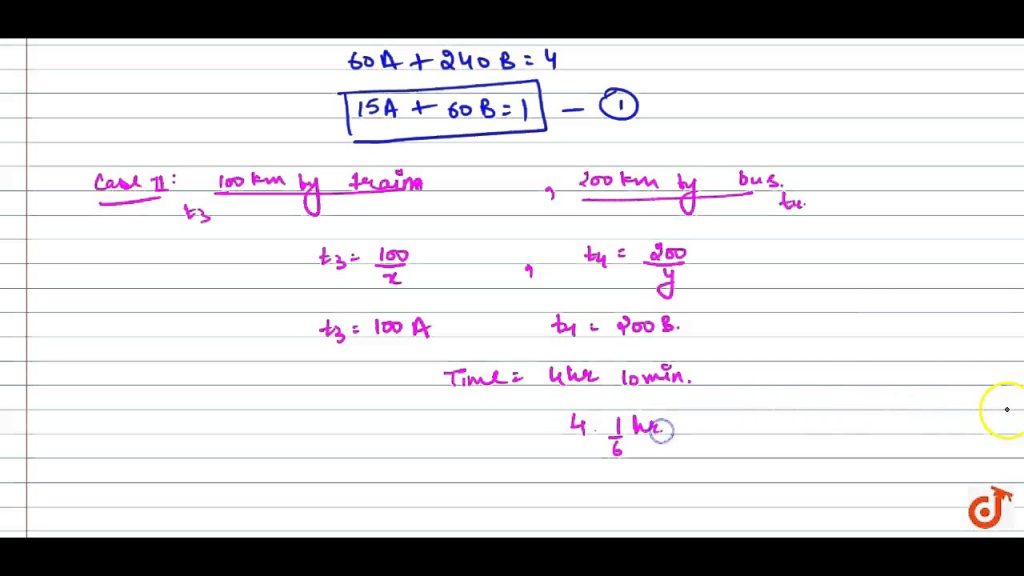 60A + 240B = 4
15A + 60B = 1 — ①
Case II: 100 km by train, 200 km by bus.
t₃ t₄.
t₃ = 100/x , t₄ = 200/y
t₃ = 100 A t₄ = 200 B.
Time = 4hr 10 min.
4 1/6 hr